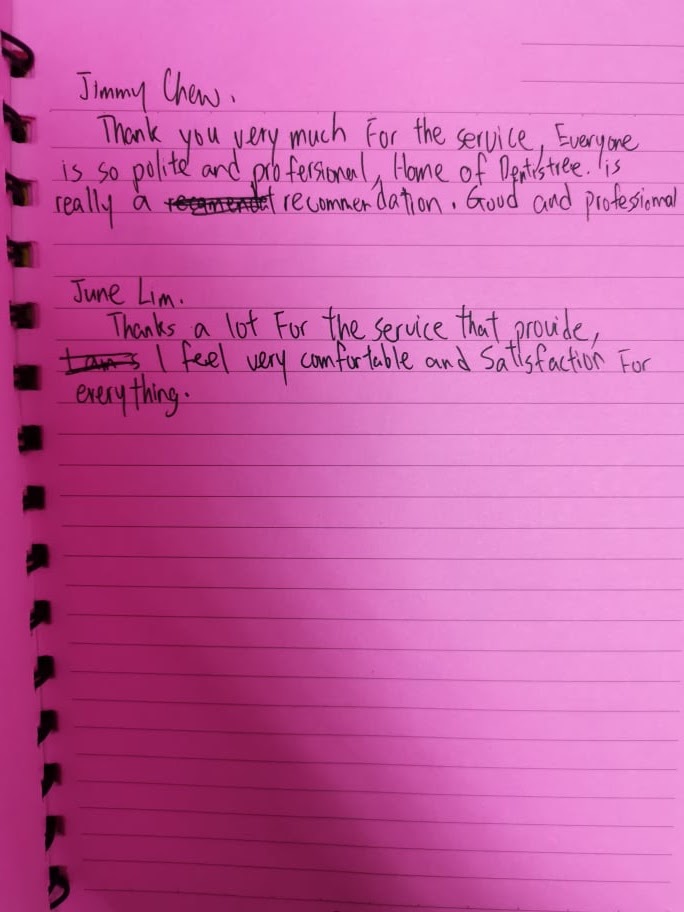 Jimmy Chew.
Thank you very much For the service, Everyone
is so polite and professional, Home of Dentistree. is
really a recommendation. Good and professional
June Lim.
Thanks a lot For the service that provide,
I am s I feel very comfortable and Satisfaction For
everything.